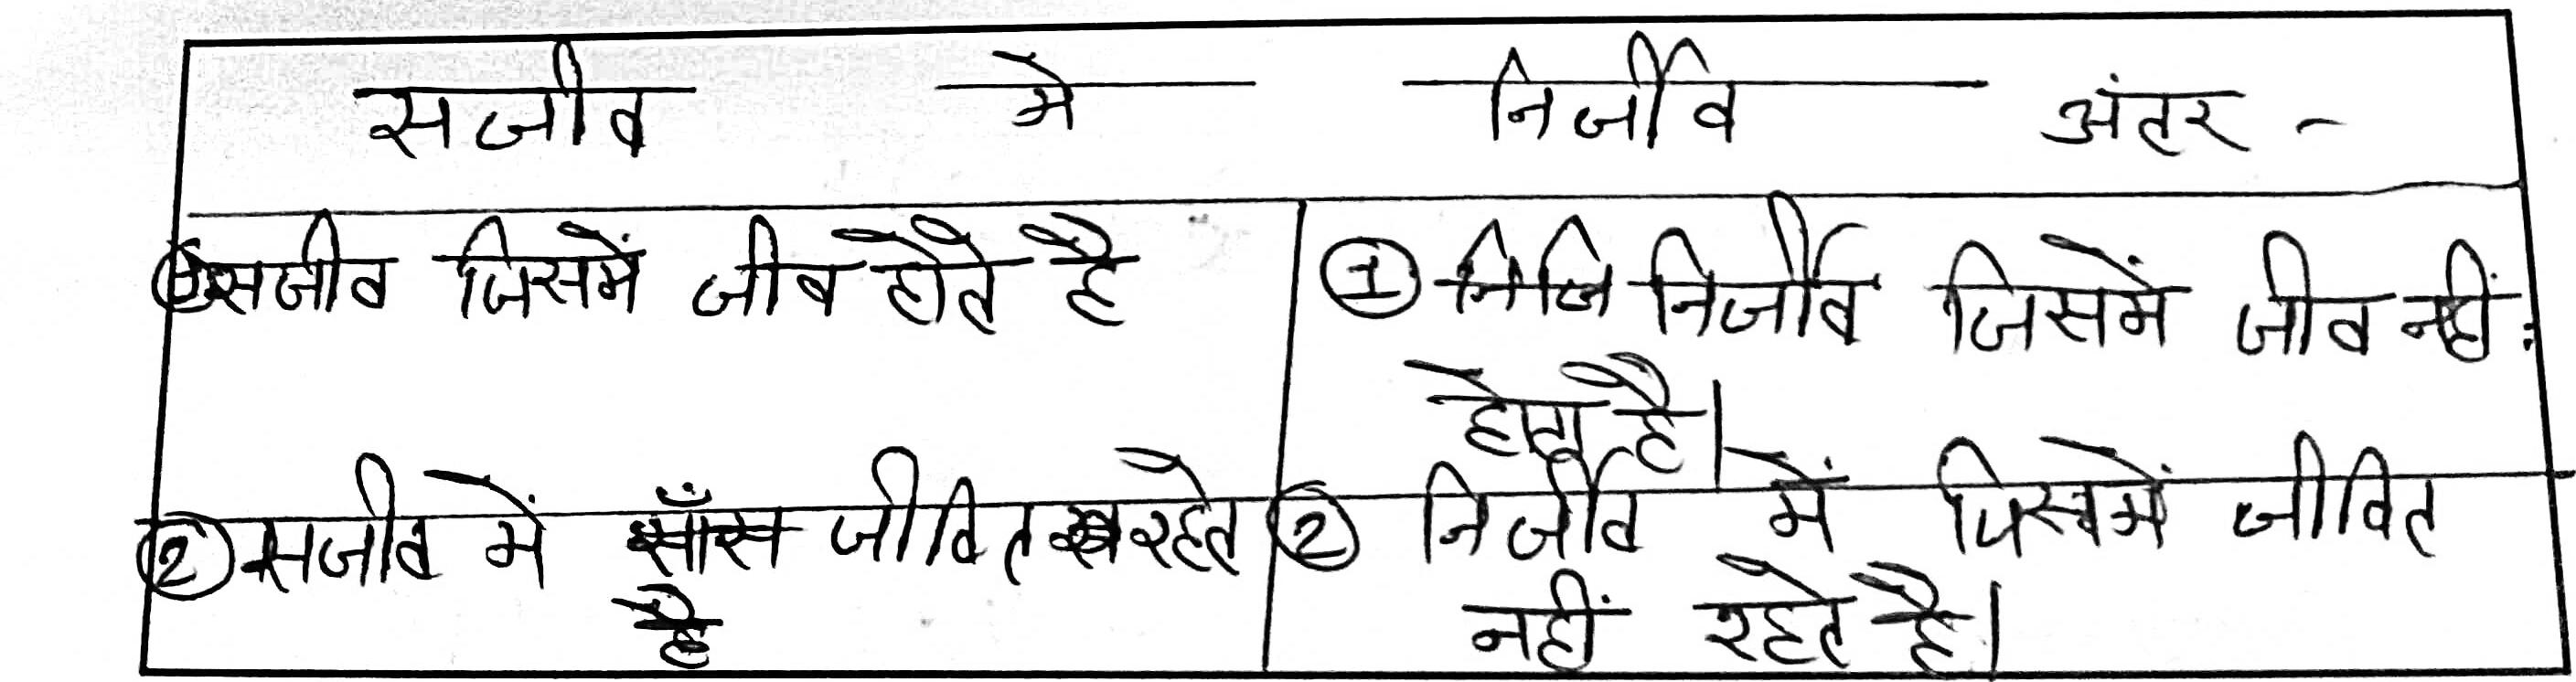 सजीव मे निर्जीव अंतर -
① सजीव जिसमें जीव होते है
① निर्जीव जिसमें जीव नहीं
होता है।
② सजीव में जीवित रहते
है
② निर्जीव में जिसमें जीवित
नहीं रहते है।